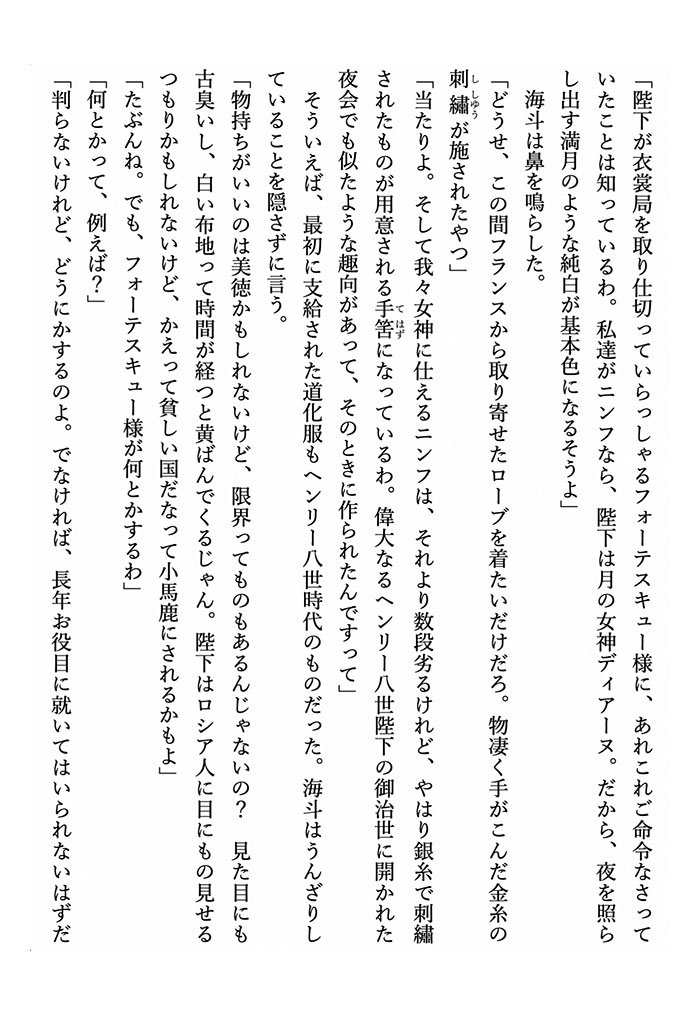 「陛下が衣裳局を取り仕切っていらっしゃるフォーテスキュー様に、あれこれご命令なさって
いたことは知っているわ。私達がニンフなら、陛下は月の女神ディアーヌ。だから、夜を照ら
し出す満月のような純白が基本色になるそうよ」
　海斗は鼻を鳴らした。
「どうせ、この間フランスから取り寄せたローブを着たいだけだろ。物凄く手がこんだ金糸の
刺繡が施されたやつ」
「当たりよ。そして我々女神に仕えるニンフは、それより数段劣るけれど、やはり銀糸で刺繡
されたものが用意される手筈になっているわ。偉大なるヘンリー八世陛下の御治世に開かれた
夜会でも似たような趣向があって、そのときに作られたんですって」
　そういえば、最初に支給された道化服もヘンリー八世時代のものだった。海斗はうんざりし
ていることを隠さずに言う。
「物持ちがいいのは美徳かもしれないけど、限界ってものもあるんじゃないの？　見た目にも
古臭いし、白い布地って時間が経つと黄ばんでくるじゃん。陛下はロシア人に目にもの見せる
つもりかもしれないけど、かえって貧しい国だなって小馬鹿にされるかもよ」
「たぶんね。でも、フォーテスキュー様が何とかするわ」
「何とかって、例えば？」
「判らないけれど、どうにかするのよ。でなければ、長年お役目に就いてはいられないはずだ